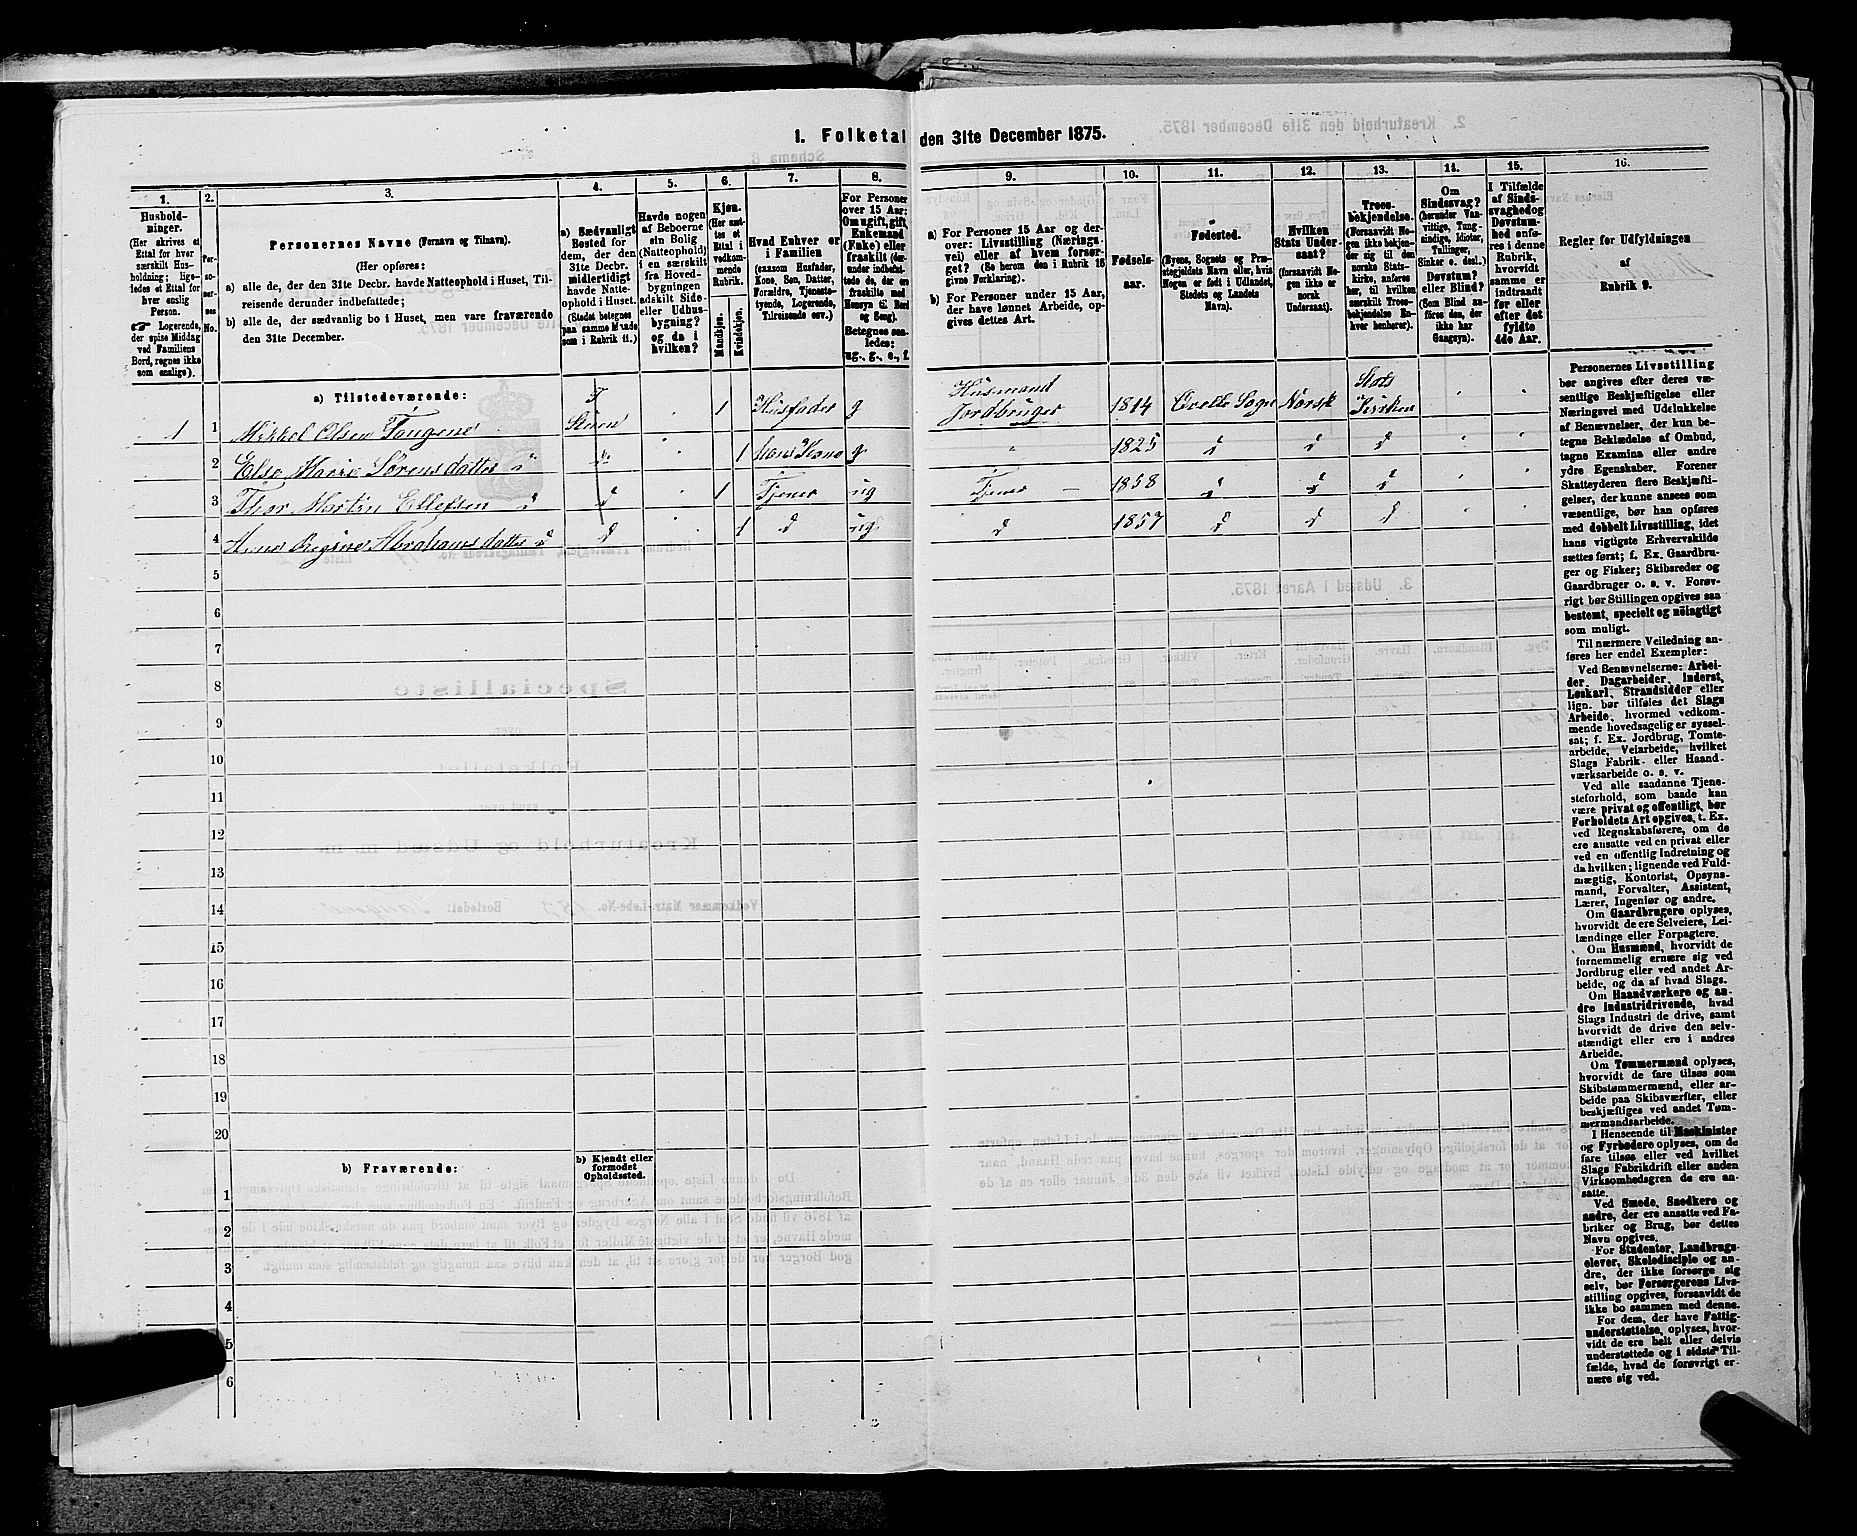 1. Folketal den 31te December 1875.
1.
2.
3.
4.
5.
6.
7.
8.
9.
10.
11.
12.
13.
14.
15.
16.
Hushold-
ninger.
(Her skrives et
Ettal for hver
særskilt Hus-
holdning; lige-
ledes et Ettal for
hver enslig
Person.
Logerende,
der spise Middag
ved Familiens
Bord, regnes ikke
som enslige).
Per-
so-
ner-
nes
No.
Personernes Navne (Fornavn og Tilnavn).
(Her opføres:
a) alle de, der den 31te Decbr. havde Natteophold i Huset, Til-
reisende derunder indbefattede;
b) alle de, der sædvanlig bo i Huset, men vare fraværende
den 31te December.
a) Sædvanligt
Bosted for
dem, der den
31te Decbr.
midlertidigt
havde Natte-
ophold i Huset.
(Stedet betegnes
paa samme Maade
som i Rubrik 11.)
Havde nogen
af Beboerne
sin Bolig
(Natteophold)
i en særskilt
fra Hoved-
bygningen
adskilt Side-
eller Udhus-
bygning?
og da i
hvilken?
Kjøn.
(Her sæt-
tes et
Ettal i
vedkom-
mende
Rubrik.
Mandkjøn.
Kvindekjøn.
Hvad Enhver er
i Familien
(saasom Husfader,
Kone, Søn, Datter,
Forældre, Tjeneste-
tyende, Logerende,
Tilreisende osv.)
For Personer
over 15 Aar:
Om ugift, gift,
Enkemand
(Enke) eller
fraskilt (der-
under indbefat-
tede de, der ere
fraskilte med
Hensyn til Bord
og Seng).
Betegnes saa-
ledes:
ug., g., e., f.
a) For Personer 15 Aar og der-
over: Livsstilling (Nærings-
vei) eller af hvem forsør-
get? (Se herom den i Rubrik 16
givne Forklaring).
b) For Personer under 15 Aar,
der have lønnet Arbeide, op-
gives dettes Art.
Fødsels-
aar.
Fødested.
(Byens, Sognets og Præ-
stegjeldets Navn eller, hvis
Nogen er født i Udlandet,
Stedets og Landets
Navn).
Hvilken
Stats Under-
saat?
(forsaavidt No-
gen ikke er
norsk
Undersaat).
Troes-
bekjendelse.
(Forsaavidt No-
gen ikke bekjen-
der sig til den
norske Stats-
kirke, anføres
her, til hvilken
særskilt Troes-
bekjendelse En-
hver henhører).
Om
Sindssvag?
(herunder Van-
vittige, Tung-
sindige, Idioter,
Tullinger,
Sinker o. desl.)
Døvstum?
eller Blind?
(Som Blind an-
føres den, der
ikke har
Gangsyn).
I Tilfælde
af Sinds-
svaghed og
Døvstum-
hed anfø-
res i denne
Rubrik,
hvorvidt
samme er
indtraadt
før eller
efter det
fyldte
4de Aar.
Regler for Udfyldningen
af
Rubrik 9.
a) Tilstedeværende:
1 1 Mikkel Olsen Tangene 1 Husfader g Husmand Jordbruger 1814 Norsk Stats Kirken
2 Else Marie Sørensdatter 1 hans Kone g 1825
3 Thor Martin Ellefsen 1 Tjener ug Tjener 1858
4 Anne Regine Abrahamsdatter 1 ug 1857
5
6
7
8
9
10
11
12
13
14
15
16
17
18
19
20
b) Fraværende:
b) Kjendt eller
formodet
Opholdssted.
1
2
3
4
5
6
Personernes Livsstilling
bør angives efter deres væ-
sentlige Beskjæftigelse eller
Næringsvei med Udelukkelse
af Benævnelser, der kun be-
tegne Beklædelse af Ombud,
tagne Examina eller andre
ydre Egenskaber. Forener
Skatteyderen flere Beskjæfti-
gelser, der kunne ansees som
væsentlige, bør han opføres
med dobbelt Livsstilling, idet
hans vigtigste Erhvervskilde
sættes først; f. Ex. Gaardbru-
ger og Fisker; Skibsreder og
Gaardbruger o. s. v. Forøv-
rigt bør Stillingen opgives saa
bestemt, specielt og nöiagtigt
som muligt.
Til nærmere Veiledning an-
føres her endel Exempler:
Ved Benævnelserne: Arbei-
der, Dagarbeider, Inderst,
Løskarl, Strandsidder eller
lign. bør tilføies det Slags
Arbeide, hvormed vedkom-
mende hovedsagelig er syssel-
sat; f. Ex. Jordbrug, Tomte-
arbeide, Veiarbeide, hvilket
Slags Fabrik- eller Haand-
værksarbeide o. s. v.
Ved alle saadanne Tjene-
steforhold, som baade kan
være privat og offentligt, bør
Forholdets Art opgives, t. Ex.
ved Regnskabsførere, om de
ere ansatte ved en privat eller
ved en offentlig Indretning og
da hvilken; lignende ved Fuld-
mægtig, Kontorist, Opsyns-
mand, Forvalter, Assistent,
Lærer, Ingeniør og andre.
Om Gaardbrugere oplyses,
hvorvidt de ere Selveiere, Lei-
lændinge eller Forpagtere.
Om Husmænd, hvorvidt de
fornemmelig ernære sig ved
Jordbrug eller ved andet Ar-
beide, og da af hvad Slags.
Om Haandværkere og an-
dre Industridrivende, hvad
Slags Industri de drive, samt
hvorvidt de drive den selv-
stændigt eller ere i andres
Arbeide.
Om Tømmermænd oplyses,
hvorvidt de fare tilsøs som
Skibstømmermænd, eller ar-
beide paa Skibsværfter, eller
beskjæftiges ved andet Tøm-
mermandsarbeide.
I Henseende til Maskinister
og Fyrbødere oplyses, om de
fare tilsøs eller ved hvilket
Slags Fabrikdrift eller anden
Virksomhedsgren de ere an-
satte.
Ved Smede, Snedkere og
andre, der ere ansatte ved Fa-
briker og Brug, bør dettes
Navn opgives.
For Studenter, Landbrugs-
elever, Skoledisciple og an-
dre, der ikke forsørge sig
selv, bør Forsørgerens Livs-
stilling opgives, forsaavidt de
ikke bo sammen med denne.
For dem, der have Fattig-
understøttelse, oplyses, hvor-
vidt de ere helt eller delvis
understøttede og i sidste Til-
fælde, hvad de forøvrigt er-
nære sig ved.